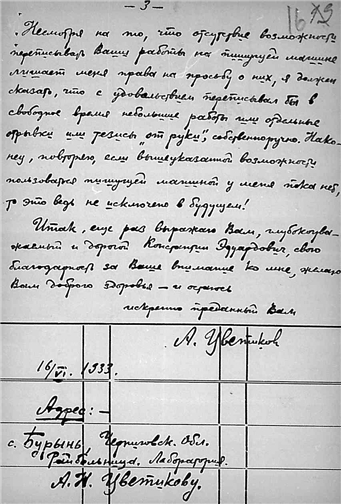 — 3 —
Несмотря на то, что отсутствие возможности
переписывать Ваши работы на пишущей машине
лишает меня права на просьбу о них, я должен
сказать, что с удовольствием переписывал бы в
свободное время небольшие работы или отдельные
отрывки или тезисы "от руки", собственноручно. Нако-
нец, повторяю, если вышеуказанной возможности
пользоваться пишущей машиной у меня пока нет,
то это ведь не исключено в будущем!
Итак, еще раз выражаю Вам, глубокоува-
жаемый и дорогой Константин Эдуардович, свою
благодарность за Ваше внимание ко мне, желаю
Вам доброго здоровья — и остаюсь
искренно преданный Вам
А. Цветиков
16/VI. 1933.
Адрес: —
с. Бурынь, Черниговск. Обл.
Райбольница. Лаборатория.
А. Н. Цветикову.